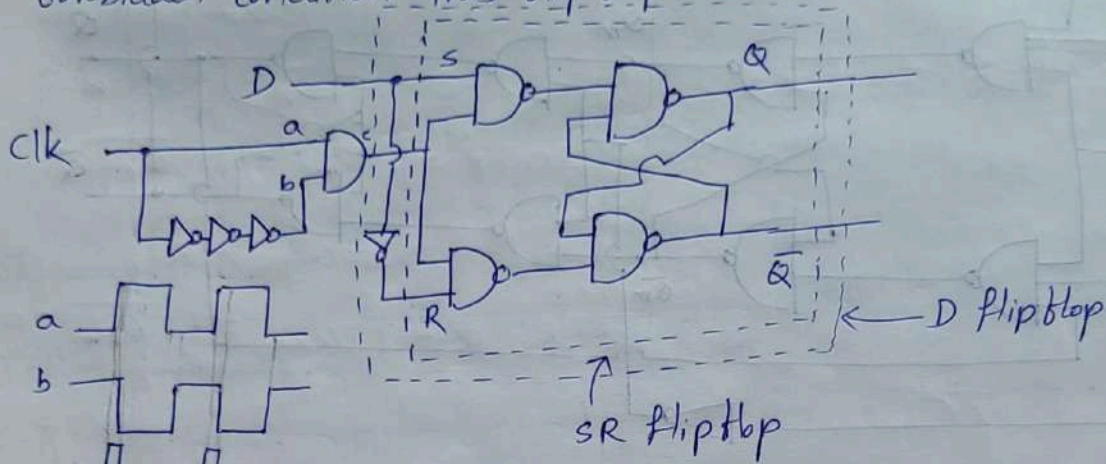 D
S
Q
Clk
a
c
b
R
Q̅
a
b
D flipflop
SR flipflop